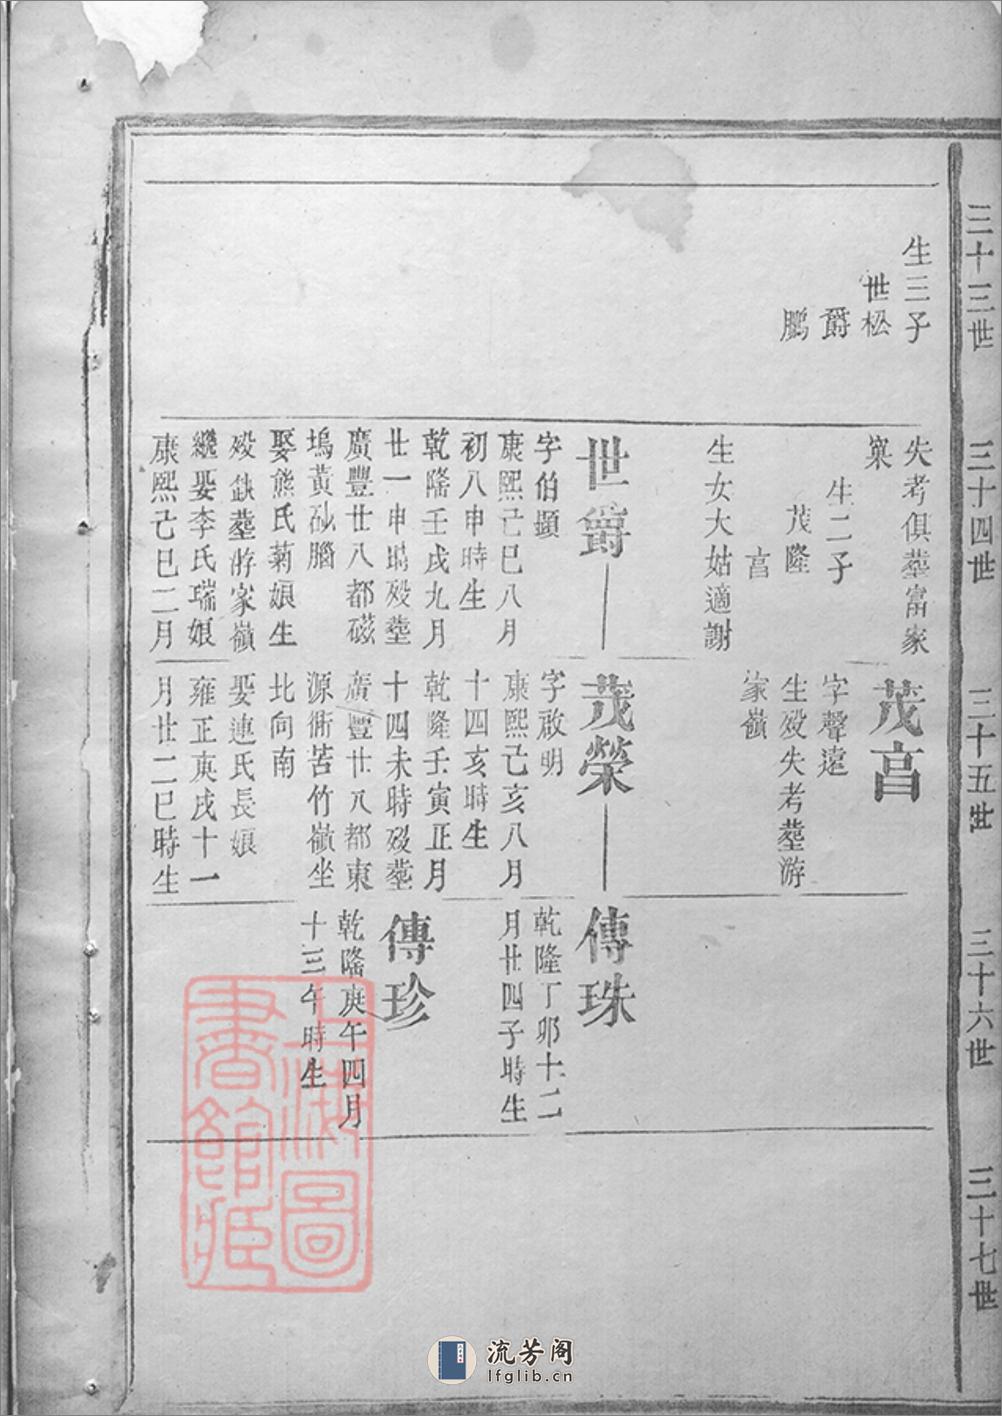 三十三世
生三子
世松
爵
鵬
三十四世
失考俱塟富家
窠
生二子
茂隆
亯
生女大姑適謝
世爵
字伯顕
康熙己巳八月
初八申時生
乾隆壬戌九月
廿一申時殁塟
廣豐廿八都磁
塢黃砂腦
娶熊氏菊娘生
殁缺塟游家嶺
繼娶李氏瑞娘
康熙己巳二月
三十五世
茂亯
字聲遠
生殁失考塟游
家嶺
茂榮
字啟明
康熙己亥八月
十四亥時生
乾隆壬寅正月
十四未時殁塟
廣豐廿八都東
源衕苦竹嶺坐
北向南
娶連氏長娘
雍正庚戌十一
月廿二巳時生
三十六世
傳珠
乾隆丁卯十二
月廿四子時生
傳珍
乾隆庚午四月
十三午時生
三十七世
上海圖
書館藏
流芳阁
lfglib.cn